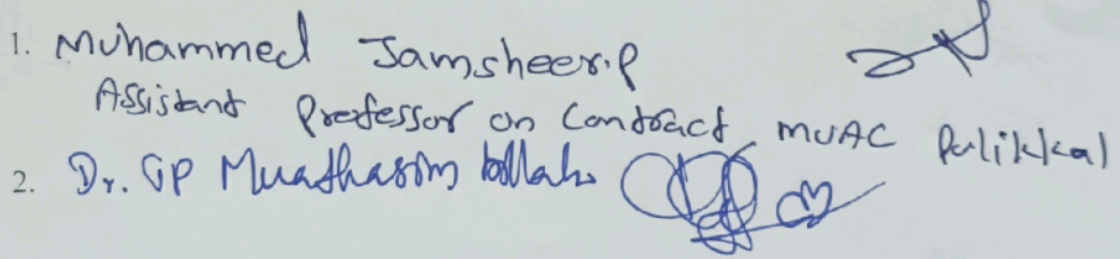 1. Muhammed Jamsheer.P
Assistant Professor on Contract, MUAC Pulikkal
2. Dr. GP Muathasim billah